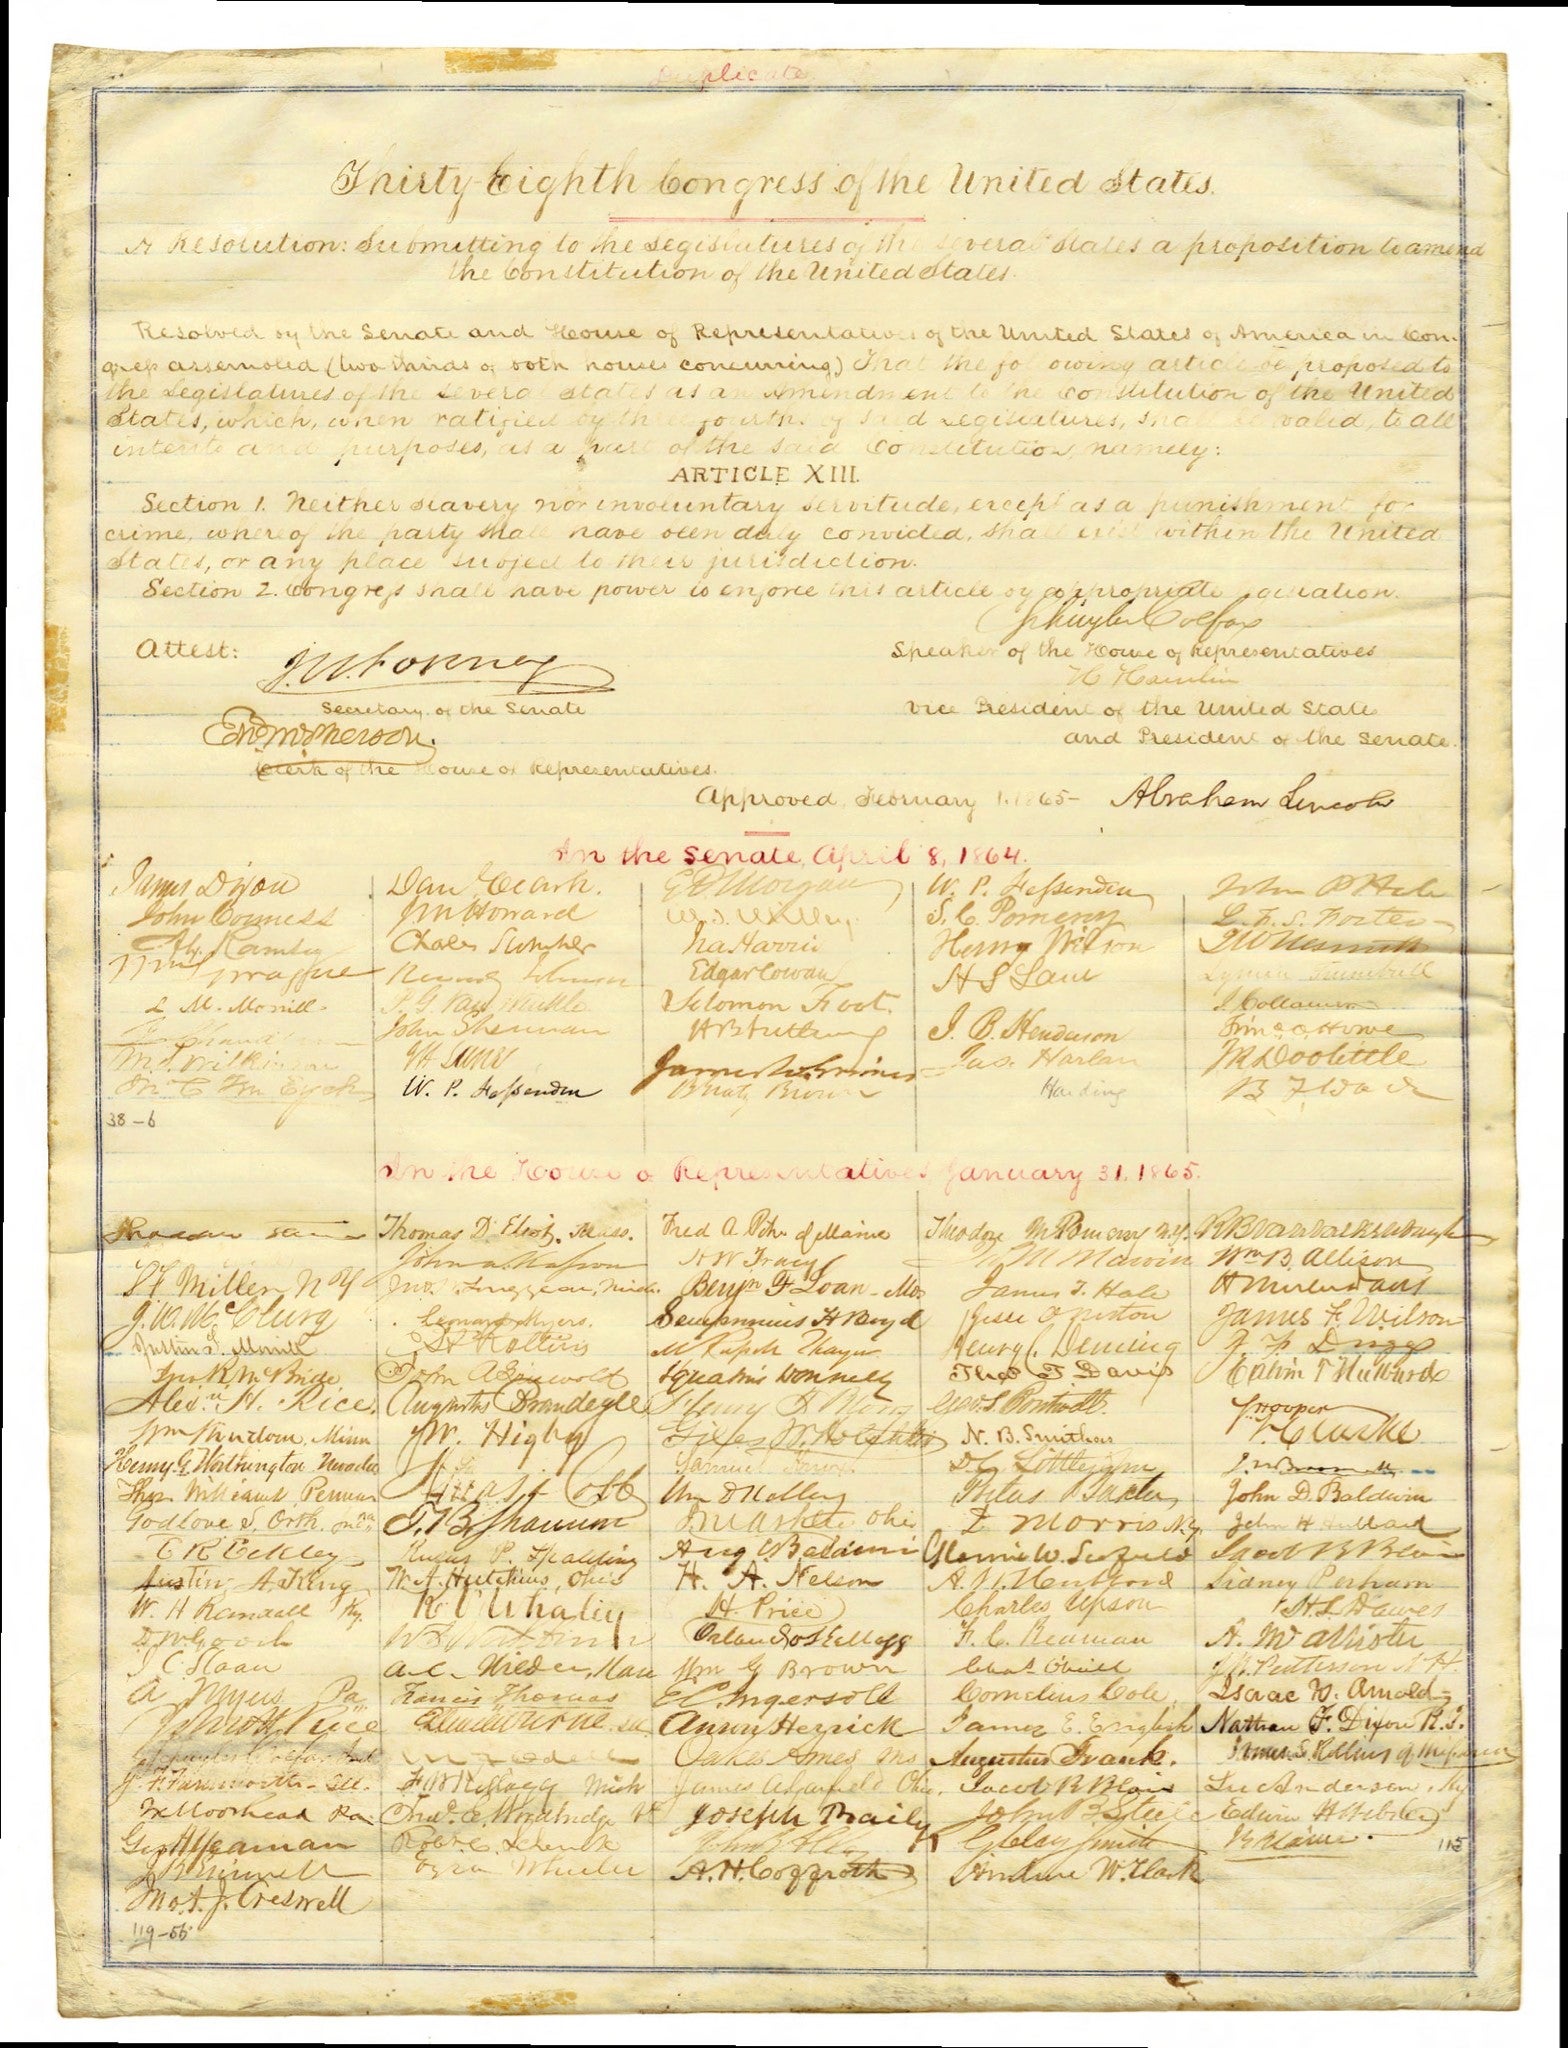 Duplicate.
Thirty-Eighth Congress of the United States.
A Resolution: Submitting to the Legislatures of the several States a proposition to amend
the Constitution of the United States.
Resolved by the Senate and House of Representatives of the United States of America in Con-
gress assembled (two thirds of both houses concurring) That the following article be proposed to
the Legislatures of the several States as an Amendment to the Constitution of the United
States, which, when ratified by three fourths of said Legislatures, shall be valid, to all
intents and purposes, as a part of the said Constitution, namely:
ARTICLE XIII.
Section 1. Neither slavery nor involuntary servitude, except as a punishment for
crime, whereof the party shall have been duly convicted, shall exist within the United
States, or any place subject to their jurisdiction.
Section 2. Congress shall have power to enforce this article by appropriate legislation.
Schuyler Colfax
Attest:
Speaker of the House of Representatives
J.W. Forney
H Hamlin
Secretary of the Senate
Vice President of the United States
Edwd McPherson.
and President of the Senate.
Clerk of the House of Representatives.
Approved, February 1. 1865- Abraham Lincoln
In the Senate, April 8, 1864.
James Dixon Danl Clark. E D Morgan W. P. Fessenden John P Hale
John Conness J M Howard S. C. Pomeroy L. F. S. Foster
Ramsey Charles Sumner Ira Harris Henry Wilson J W Nesmith
Sprague Reverdy Johnson Edgar Cowan H S Lane Lyman Trumbull
L. M. Morrill P. G. Van Winkle Solomon Foot. J Collamer
John Sherman J. B. Henderson T. O. Howe
M. S. Wilkinson J H Lane James W. Grimes Jas. Harlan J R Doolittle
Ten Eyck W. P. Fessenden B Gratz Brown Harding B F Wade
38-6
In the House of Representatives January 31. 1865.
Thomas D. Eliot, Mass. Fred A Pike of Maine Theodore M Pomeroy N.Y. R B Van Valkenburgh
John A. Kasson H W Tracy Marvin Wm B. Allison
S F Miller N Y Benjn F Loan Mo James T. Hale H Winter Davis
J. W. McClurg Leonard Myers. Sempronius H Boyd Jesse O Norton James F. Wilson
Justin S. Morrill M Russell Thayer Henry C Deming
Jno R McBride John A Griswold Ignatius Donnelly Thos T Davis Calvin T Hulburd
Alexr H. Rice Augustus Brandegee Geo S Boutwell S Hooper
Wm Windom, Minn W. Higby Giles W. Hotchkiss N. B. Smithers
Henry G Worthington Nevada D C Littlejohn
Thos Williams, Penna Amasa Cobb Wm D Kelley Portus Baxter John D. Baldwin
Godlove S. Orth. T. B. Shannon Ohio D Morris N.Y.
E R Eckley Rufus P. Spalding Aug C Baldwin Glenni W. Scofield Jacob B Blair
Austin A. King W. A. Hutchins, Ohio H. A. Nelson Sidney Perham
W. H Randall Ky. K. V. Whaley H. Price Charles Upson H. L. Dawes
D. W. Gooch Orlando Kellogg F. C. Beaman A. McAllister
I C Sloan Wm G Brown Chas O'Neill J W Patterson N. H.
A Myers Pa Francis Thomas E C Ingersoll Cornelius Cole, Isaac N. Arnold
Hiram Price Anson Herrick James E. English Nathan F. Dixon R. I.
Oakes Ames Ms Augustus Frank. James S Rollins of Missouri
J. F. Farnsworth Ill. F W Kellogg Mich James A Garfield Ohio. Lu Anderson, Ky
J K Moorhead Pa. Joseph Baily John B Steele Edwin H Webster
Geo H Yeaman Robt C. Schenck G Clay Smith J G Blaine. 115
J B Grinnell Ezra Wheeler A. H. Coffroth Ambrose W. Clark
Jno. A. J. Creswell
119-56